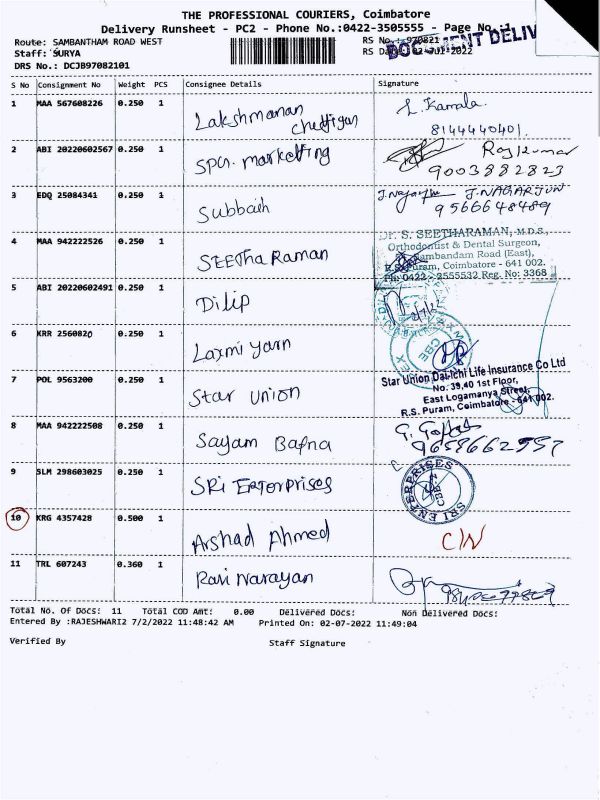 THE PROFESSIONAL COURIERS, Coimbatore
Delivery Runsheet - PC2 - Phone No.:0422-3505555 - Page No.:1
Route: SAMBANTHAM ROAD WEST
RS No.: 970821
Staff: SURYA
RS Date: 02-Jul-2022
DOCUMENT DELIV
DRS No.: DCJB97082101
S No Consignment No Weight PCS Consignee Details Signature
1 MAA 567608226 0.250 1 Lakshmanan Chettiyan L. Kamala.
8144440401.
2 ABI 20220602567 0.250 1 SPG. marketting Rajkumar
9003882823
3 EDQ 25084341 0.250 1 Subbaih J. NAGARJUN
9566648489
4 MAA 942222526 0.250 1 SEETha Raman
Dr. S. SEETHARAMAN, M.D.S.,
Orthodontist & Dental Surgeon,
Sambandam Road (East),
R.S. Puram, Coimbatore - 641 002.
Ph: 0422 - 2555532 Reg. No: 3368
5 ABI 20220602491 0.250 1 Dilip
6 KRR 2560820 0.250 1 Laxmi yarn
CBE
7 POL 9563200 0.250 1 Star Union
Star Union Dai-ichi Life Insurance Co Ltd
No: 39,40 1st Floor,
East Logamanya Street,
R.S. Puram, Coimbatore - 641 002.
8 MAA 942222508 0.250 1 Sayam Bafna
9 SLM 298603025 0.250 1 SRi ENTerprises
SRI ENTERPRISES
CBE-2
10 KRG 4357428 0.500 1 Arshad Ahmed C/N
11 TRL 607243 0.360 1 Ravi Narayan
Total No. Of Docs: 11 Total COD Amt: 0.00 Delivered Docs: Non Delivered Docs:
Entered By :RAJESHWARI2 7/2/2022 11:48:42 AM Printed On: 02-07-2022 11:49:04
Verified By Staff Signature